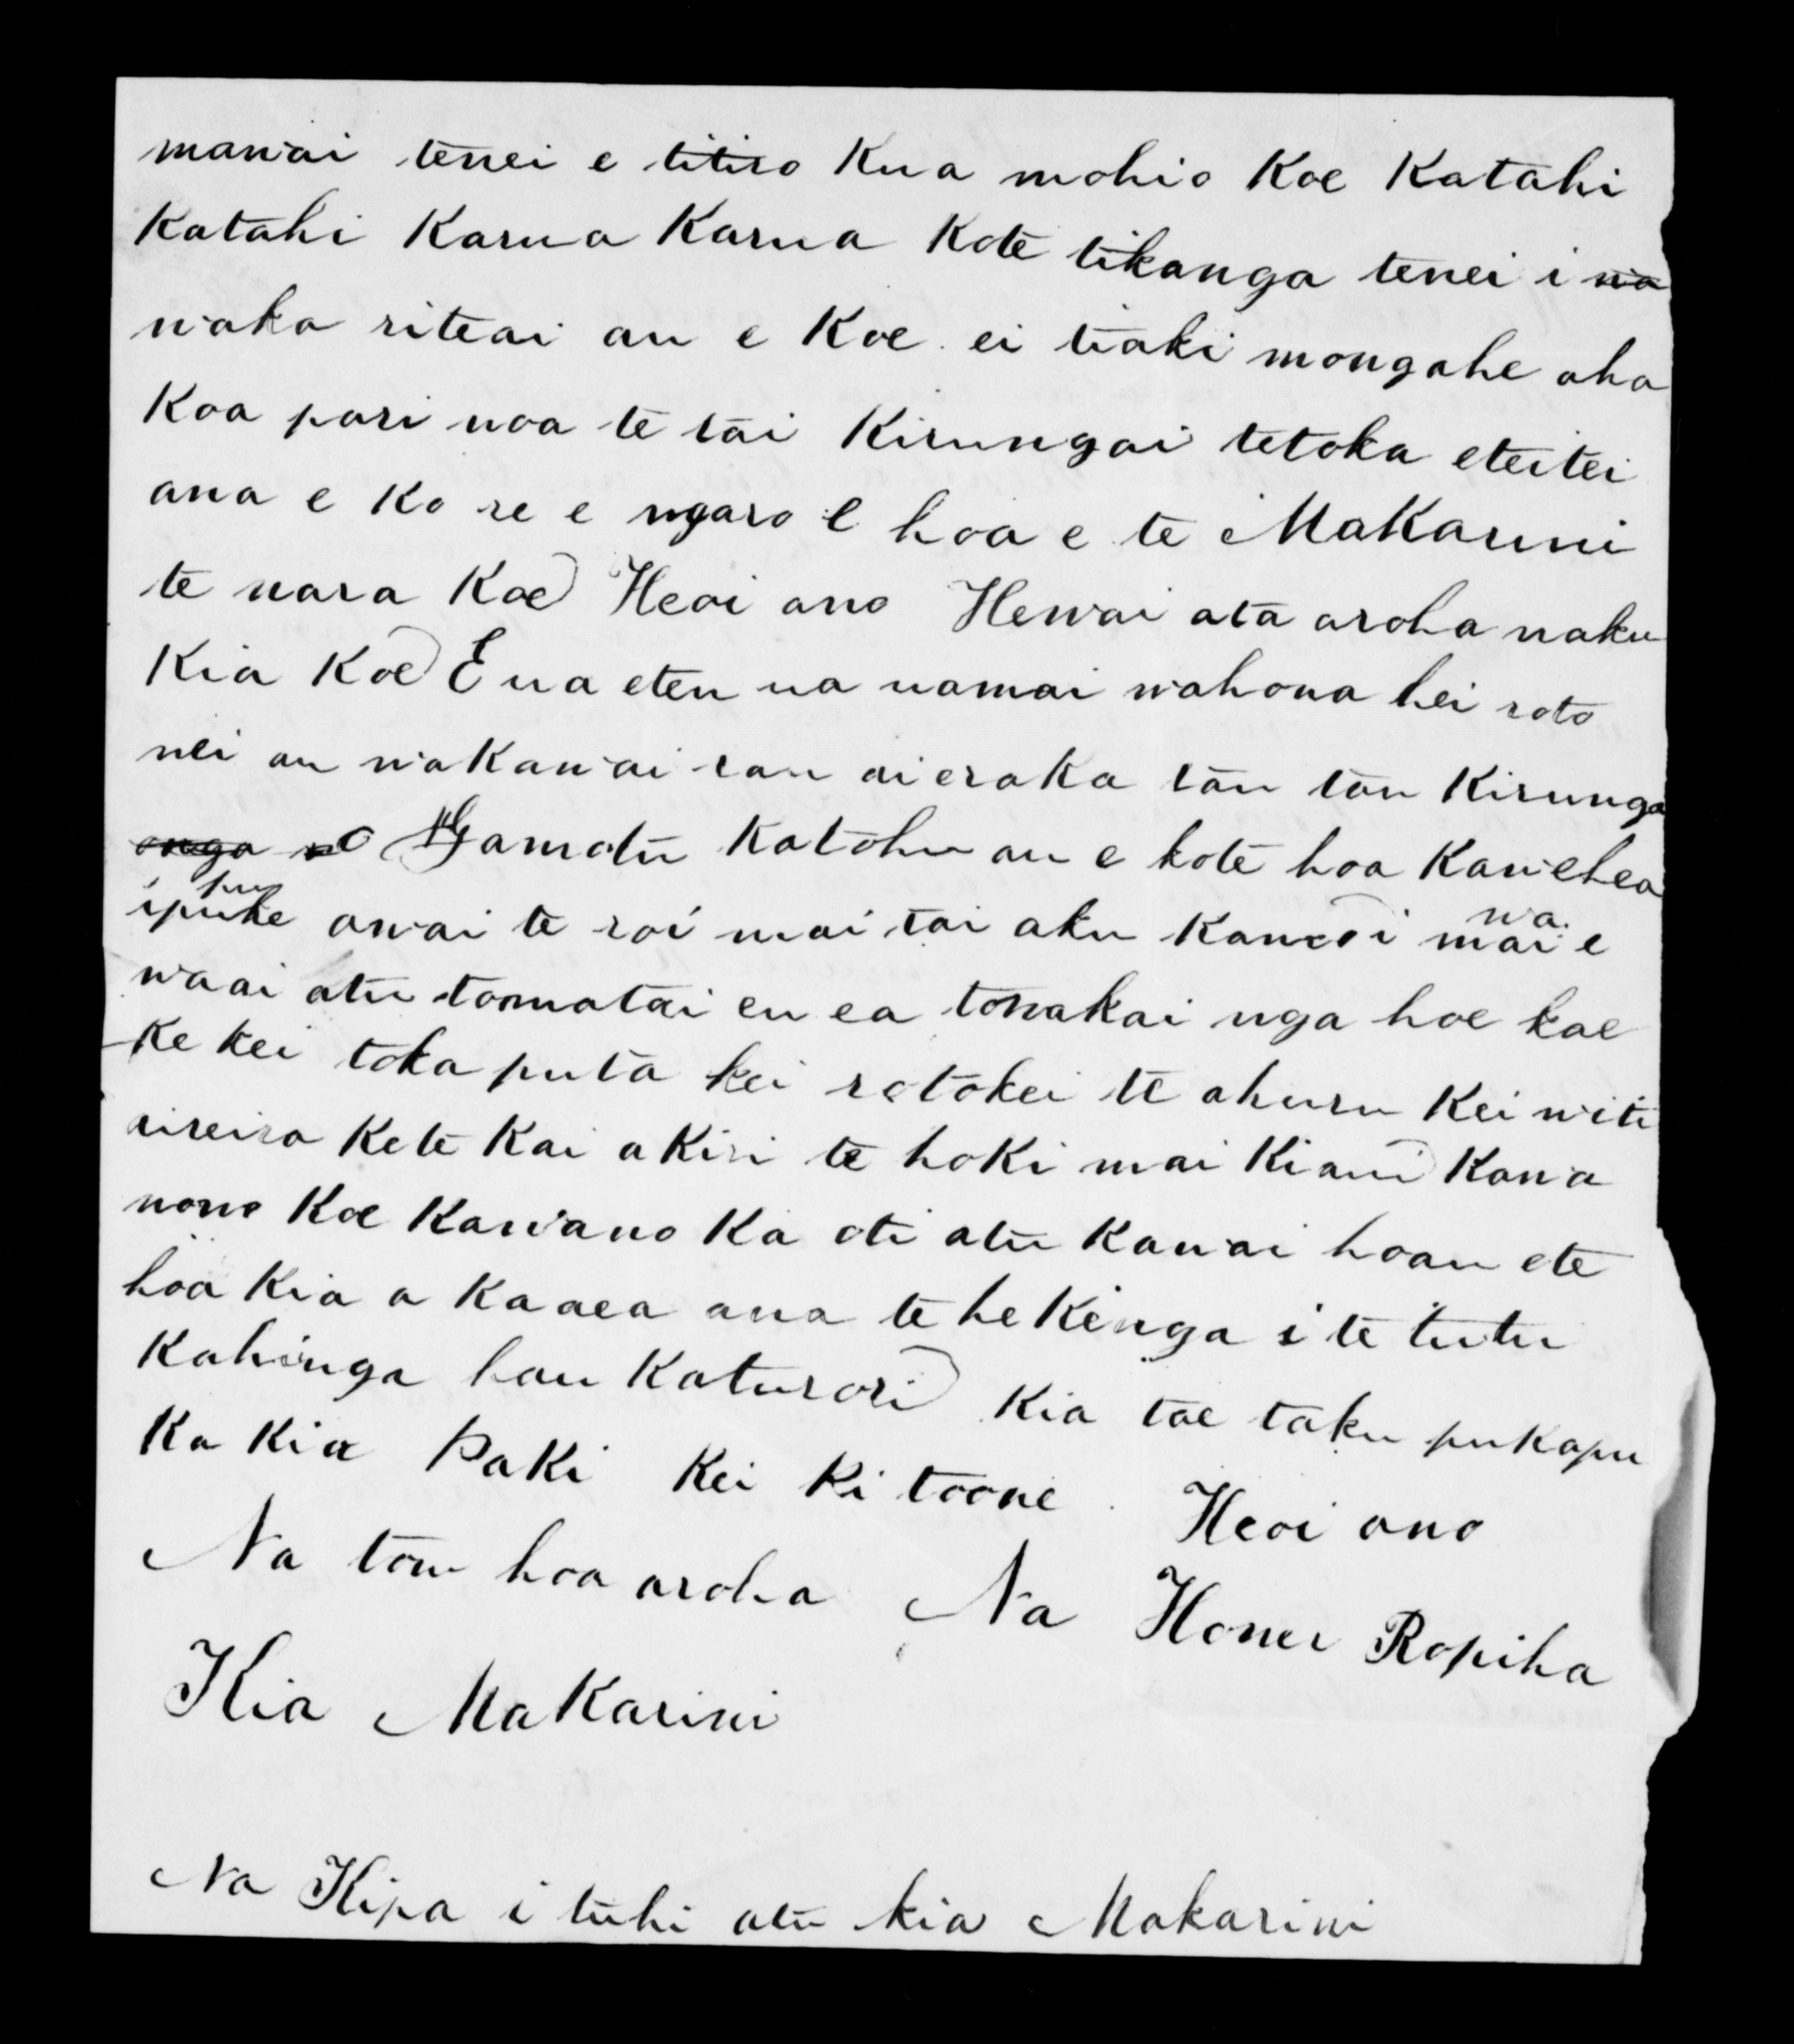 mawai tenei e titiro Kua mohio Koe Katahi
Katahi Karua Karua Kote tikanga tenei i wa
waka riteai au e Koe ei tiaki mongahe aha
Koa pari noa te tai Kirungai tetoka eteitei
ana e Ko re e ngaro E hoa e te Makarini
te nara Koe Heoi ano Hewai ata aroha naku
Kia Koe E ua eteu ua uamai wahoua hei roto
nei au wakawai rau aieraka tau tau Kirunga
onga no Ngamotu Katohu au e kote hoa Kawehea
ipuke pu awai te roi mai tai aku Kamo i mai wa e
waai atu tomatai eu ea tonakai nga hoe kae
Ke kei toka puta kei rotokei te ahuru Kei witi
rireira Kete Kai a Kiri te hoki mai Kiau Kawa
nono Koe Kawano Ka oti atu Kawai hoau ete
hoa Kia a Kaaea ana te heKenga i te tutu
Kahinga hau Katurori Kia tae taku pukapu
Ka Kia Paki Kei Ki toone. Heoi ano
Na tou hoa aroha Na Honei Ropiha
Kia Makarini
Na Kipa i tuhi atu kia Makarini